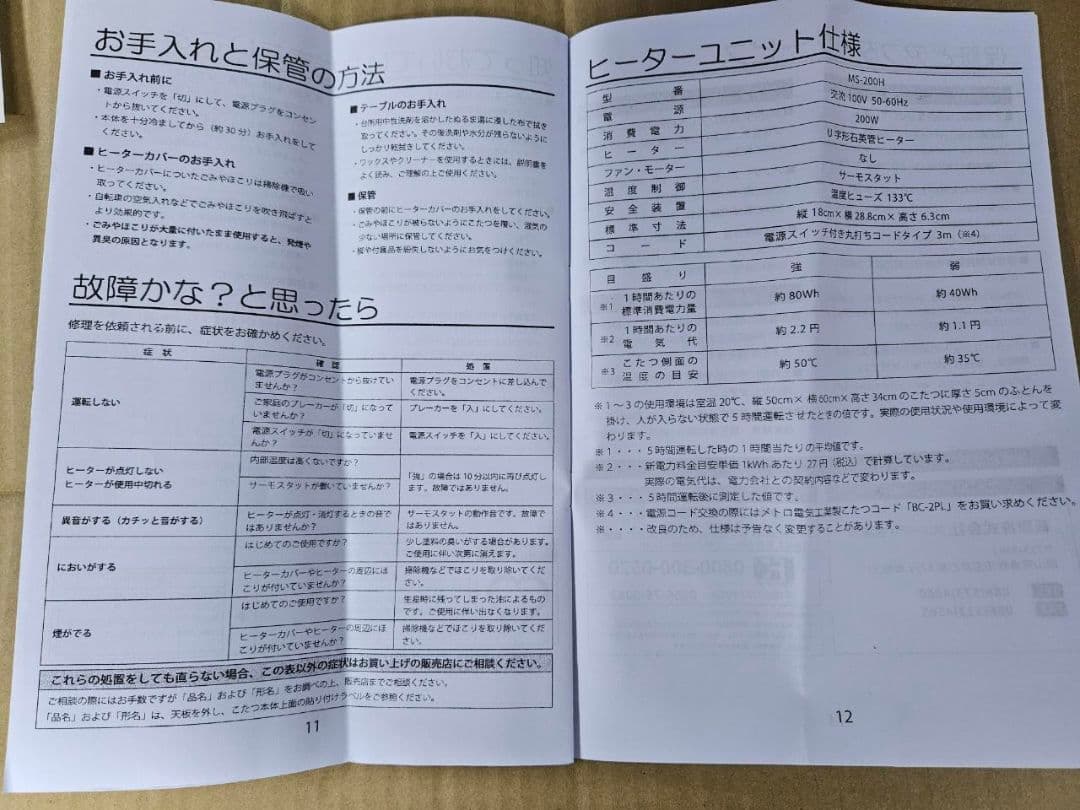 お手入れと保管の方法
■ お手入れ前に
・電源スイッチを「切」にして、電源プラグをコンセン
トから抜いてください。
・本体を十分冷ましてから（約30分）お手入れをして
ください。
■ ヒーターカバーのお手入れ
・ヒーターカバーについたごみやほこりは掃除機で吸い
取ってください。
・自転車の空気入れなどでごみやほこりを吹き飛ばすと
より効果的です。
・ごみやほこりが大量に付いたまま使用すると、発煙や
異臭の原因となります。
■ テーブルのお手入れ
・台所用中性洗剤を溶かしたぬるま湯に浸した布で拭き
取ってください。その後洗剤や水分が残らないように
しっかり乾拭きしてください。
・ワックスやクリーナーを使用するときには、説明書を
よく読み、ご理解の上ご使用ください。
■ 保管
・保管の前にヒーターカバーのお手入れをしてください。
・ごみやほこりが被らないようにこたつを覆い、湿気の
少ない場所に保管してください。
・板や付属品を紛失しないようにお気をつけください。
故障かな？と思ったら
修理を依頼される前に、症状をお確かめください。
症 状 確 認 処 置
運転しない
電源プラグがコンセントから抜けてい
ませんか？
電源プラグをコンセントに差し込んで
ください。
ご家庭のブレーカーが「切」になって
いませんか？
ブレーカーを「入」にしてください。
電源スイッチが「切」になっていませ
んか？
電源スイッチを「入」にしてください。
ヒーターが点灯しない
ヒーターが使用中切れる
内部温度は高くないですか？
サーモスタットが働いていませんか？
「強」の場合は10分以内に再び点灯し
ます。故障ではありません。
異音がする（カチッと音がする）
ヒーターが点灯・消灯するときの音で
はありませんか？
サーモスタットの動作音です。故障で
はありません。
においがする
はじめてのご使用ですか？
少し塗料の臭いがする場合があります。
ご使用に伴い次第に消えます。
ヒーターカバーやヒーターの周辺にほ
こりが付いていませんか？
掃除機などでほこりを取り除いてくだ
さい。
煙がでる
はじめてのご使用ですか？
生産時に残ってしまった油によるもの
です。ご使用に伴い出なくなります。
ヒーターカバーやヒーターの周辺にほ
こりが付いていませんか？
掃除機などでほこりを取り除いてくだ
さい。
これらの処置をしても直らない場合、この表以外の症状はお買い上げの販売店にご相談ください。
ご相談の際にはお手数ですが「品名」および「形名」をお調べの上、販売店までご相談ください。
「品名」および「形名」は、天板を外し、こたつ本体上面の貼り付けラベルをご参照ください。
11
ヒーターユニット仕様
型 番 MS-200H
電 源 交流100V 50-60Hz
消 費 電 力 200W
ヒ ー タ ー U字形石英管ヒーター
ファン・モーター なし
温 度 制 御 サーモスタット
安 全 装 置 温度ヒューズ 133℃
標 準 寸 法 縦 18cm× 横 28.8cm× 高さ 6.3cm
コ ー ド 電源スイッチ付き丸打ちコードタイプ 3m（※4）
目 盛 り 強 弱
※1 1時間あたりの
標準消費電力量 約80Wh 約40Wh
※2 1時間あたりの
電 気 代 約2.2円 約1.1円
※3 こたつ側面の
温度の目安 約50℃ 約35℃
※1～3の使用環境は室温 20℃、縦 50cm× 横 60cm× 高さ 34cm のこたつに厚さ 5cm のふとんを
掛け、人が入らない状態で5時間運転させたときの値です。実際の使用状況や使用環境によって変
わります。
※1・・・5時間運転した時の1時間当たりの平均値です。
※2・・・新電力料金目安単価 1kWh あたり 27円（税込）で計算しています。
実際の電気代は、電力会社との契約内容などで変わります。
※3・・・5時間運転後に測定した値です。
※4・・・電源コード交換の際にはメトロ電気工業製こたつコード「BC-2PL」をお買い求めください。
※・・・・改良のため、仕様は予告なく変更することがあります。
12